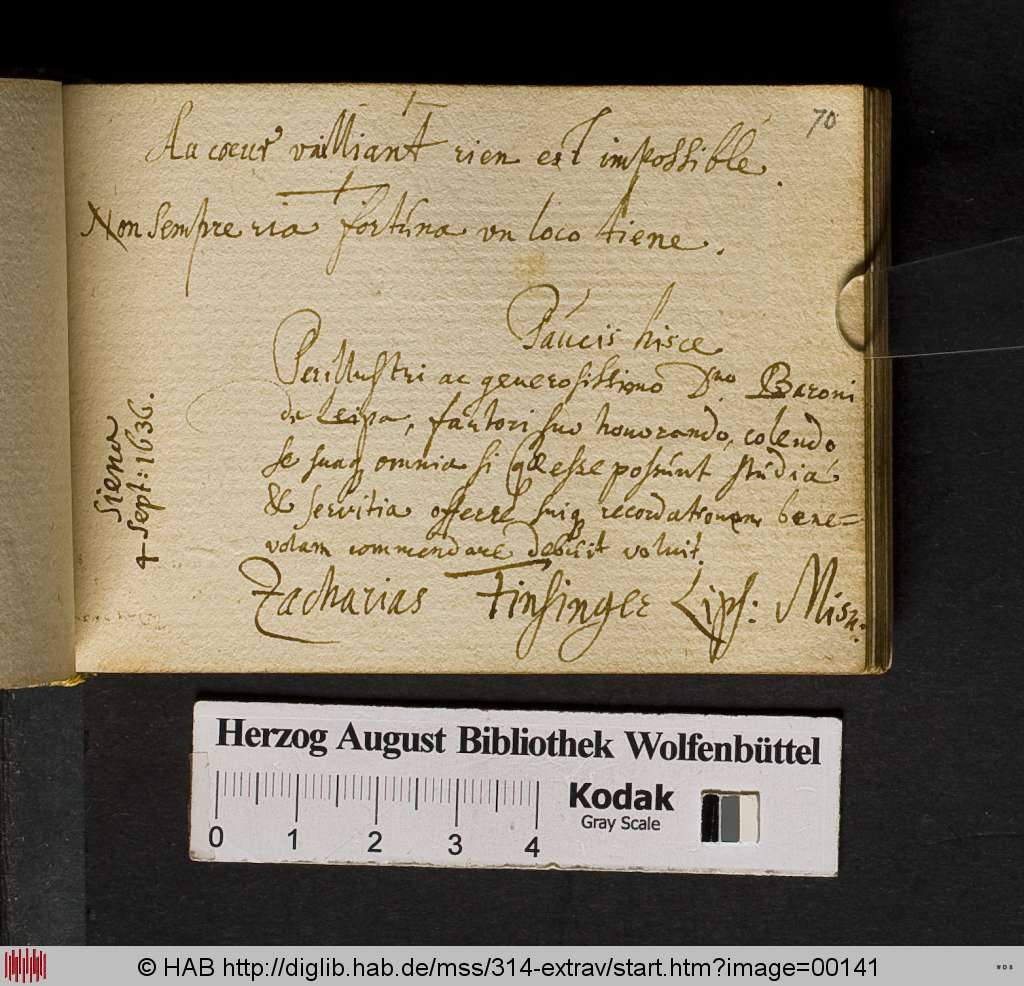 70
Au coeur vailliant rien est impossible.
Non sempre ria fortuna un loco tiene.
Paucis hisce
Perillustri ac generosissimo Dno. Baroni
de Leipa, fautori suo honorando, colendo
se suaq omnia si quae esse possunt studia
& servitia offerre suiq recordationem bene=
volam commendare debuit voluit.
Zacharias Finsinger Lips: Misn:
Siena
4 Sept: 1636.
Herzog August Bibliothek Wolfenbüttel
Kodak
Gray Scale
0 1 2 3 4
© HAB http://diglib.hab.de/mss/314-extrav/start.htm?image=00141